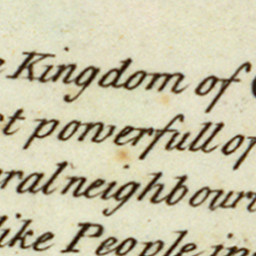 Kingdom of
powerfull of
neighbour
like People in